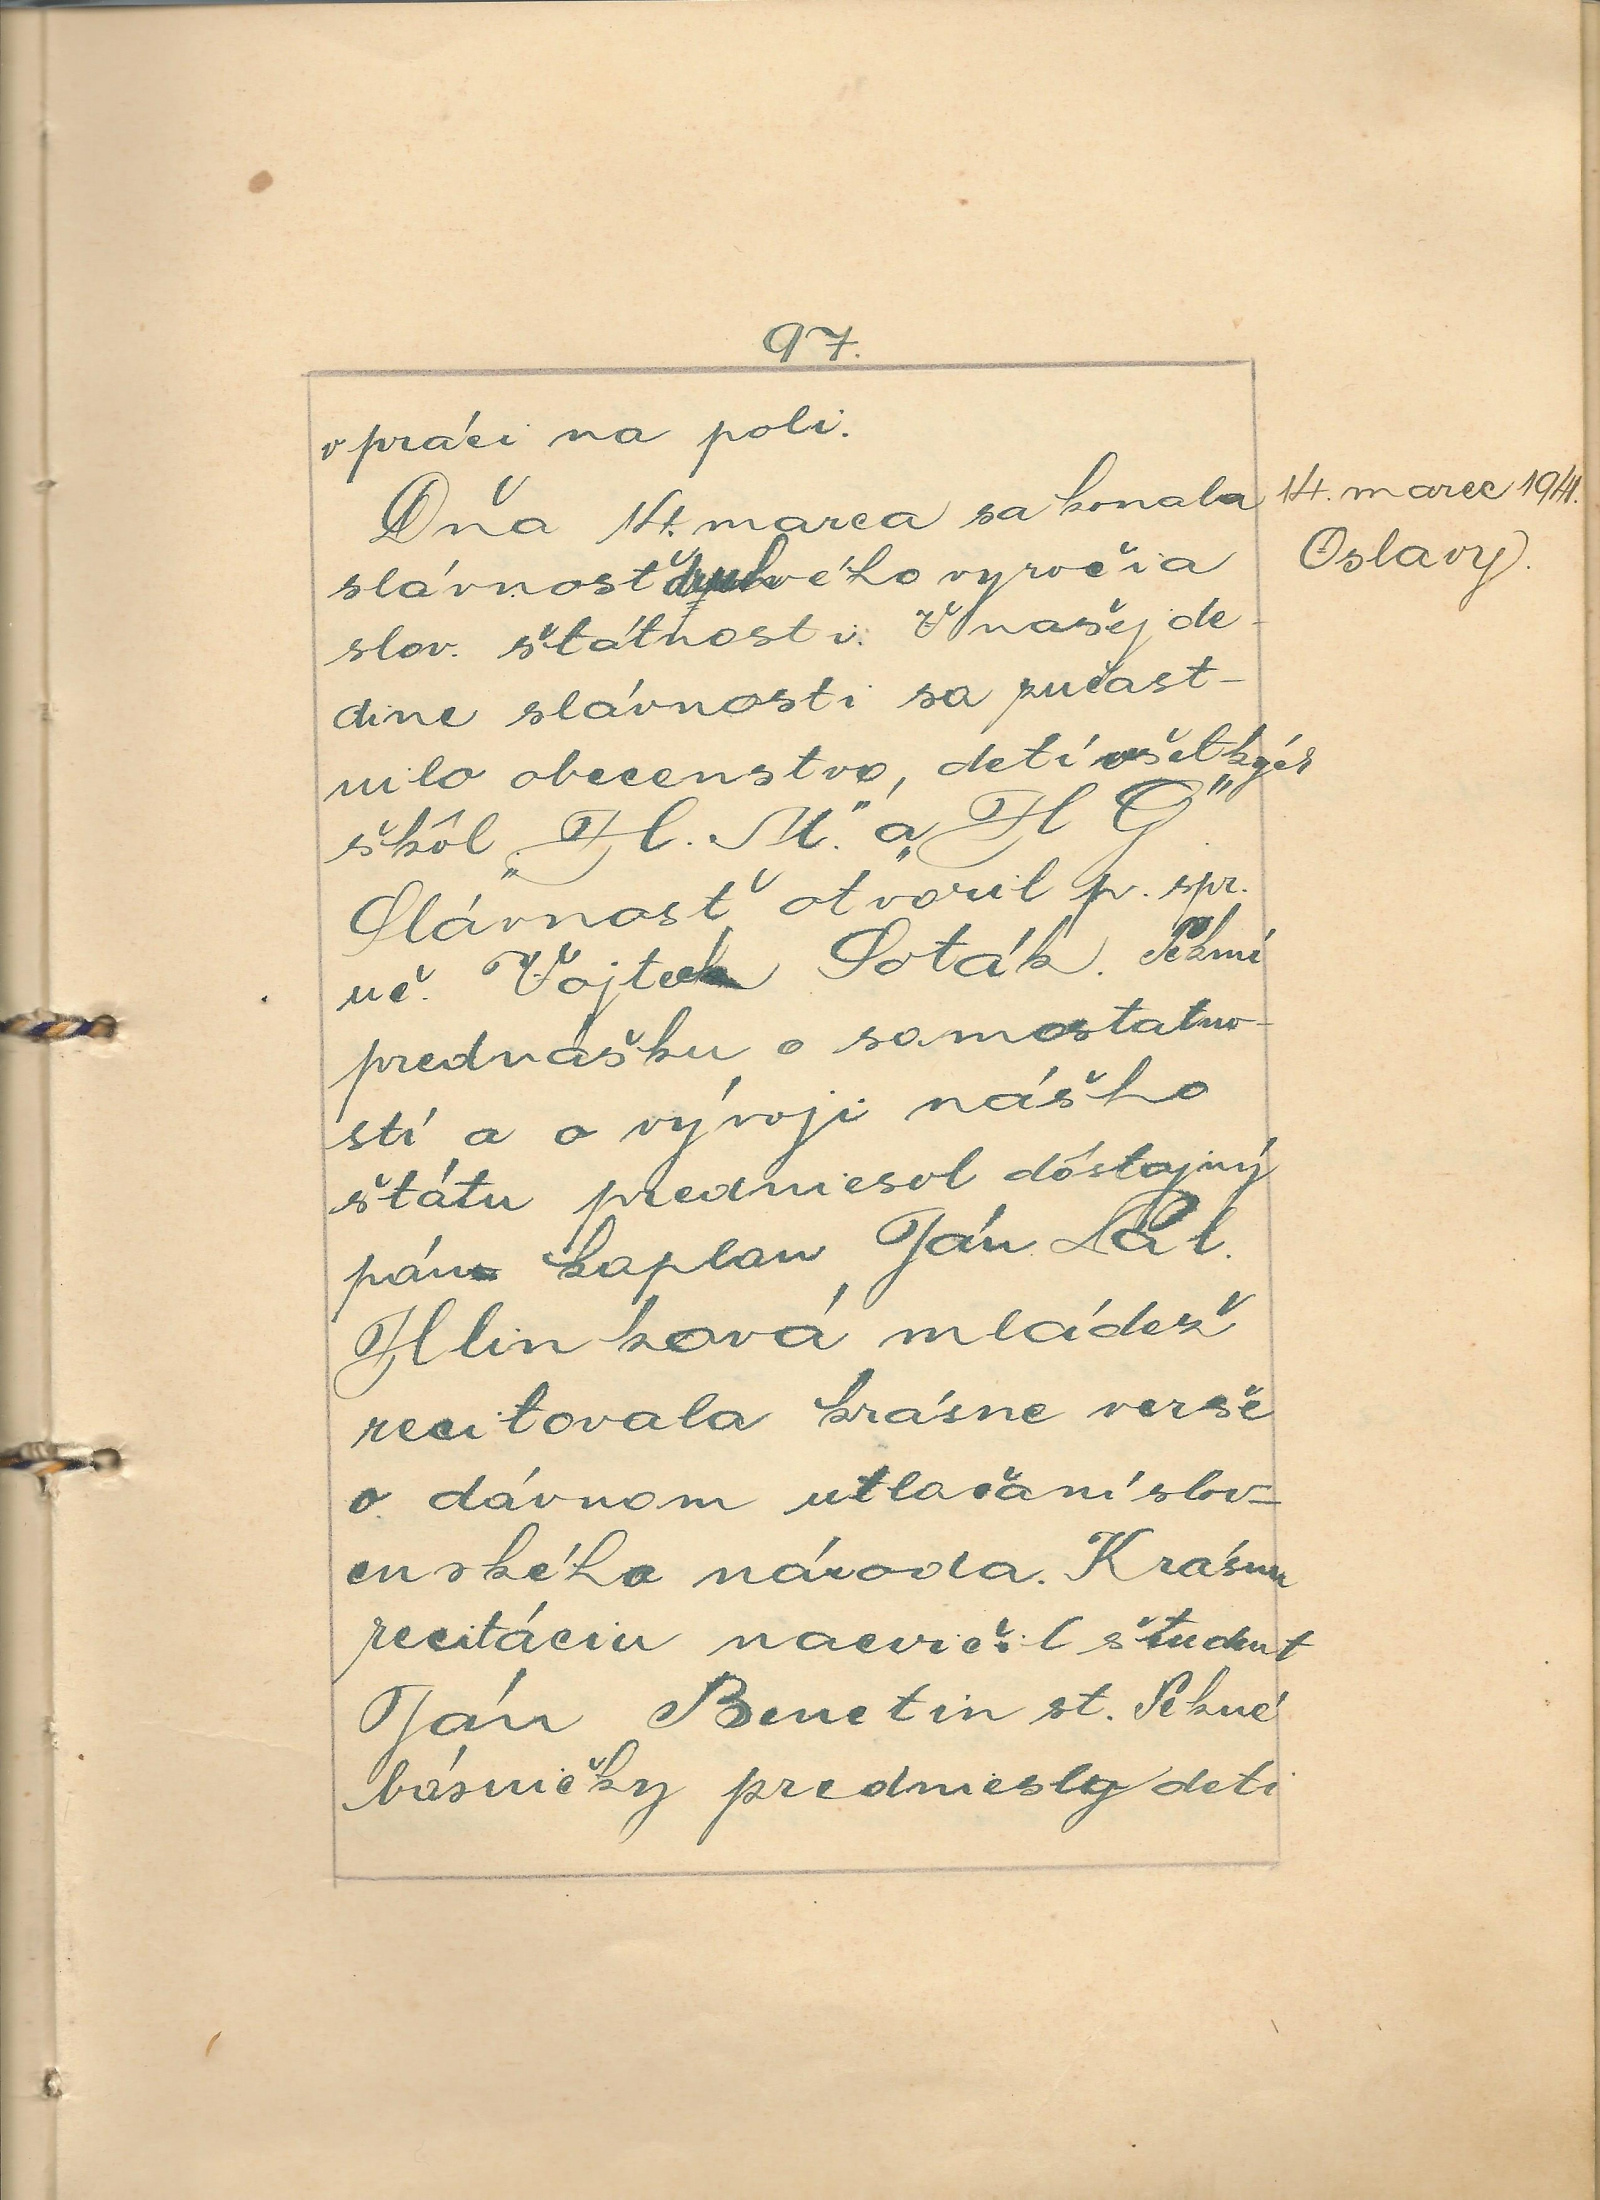 97.
v práci na poli.
Dňa 14. marca sa konala
14. marec 1941.
Oslavy.
slávnosť ého vyročia
slov. štátnosti. V našej de-
dine slávnosti sa zučast-
nilo obecenstvo, detí všetkých
škôl „H. M." a „H G"
Slávnosť otvoril p. spr.
uč. Vojtech Soták. Peknú
prednášku o samostatno-
stí a o vývoji nášho
štátu predniesol dóstojný
pán kaplan Ján
Hlinková mládež
recitovala krásne verše
o dávnom utlačaní slov-
enského národa. Krásnu
recitáciu nacvičil študent
Ján Benetin st. Pekné
básničky predniesly deti